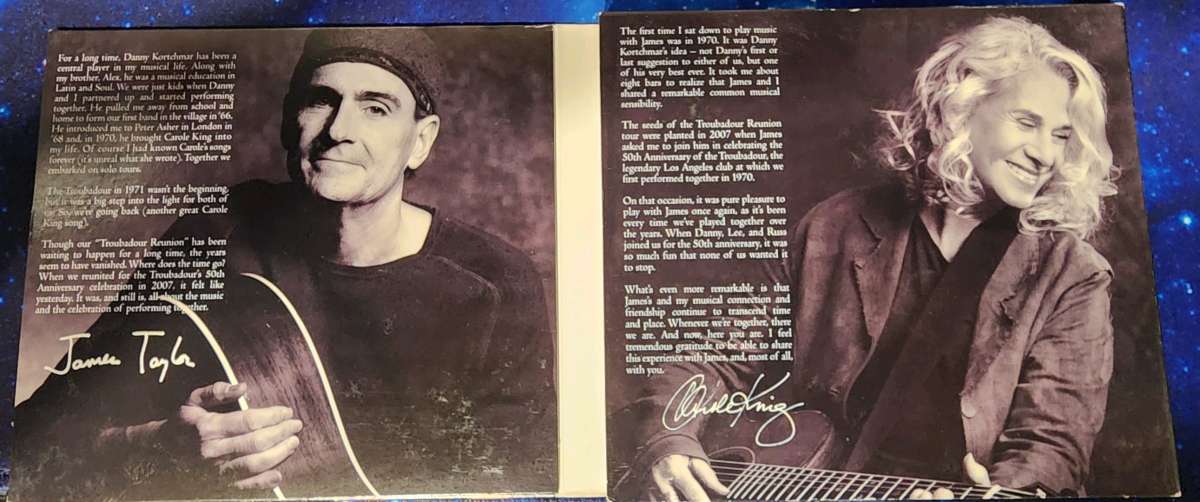 For a long time, Danny Kortchmar has been a
central player in my musical life. Along with
my brother, Alex, he was a musical education in
Latin and Soul. We were just kids when Danny
and I partnered up and started performing
together. He pulled me away from school and
home to form our first band in the village in '66.
He introduced me to Peter Asher in London in
'68 and, in 1970, he brought Carole King into
my life. Of course I had known Carole's songs
forever (it's unreal what she wrote). Together we
embarked on solo tours.
The Troubadour in 1971 wasn't the beginning,
but it was a big step into the light for both of
us. So, we're going back (another great Carole
King song).
Though our "Troubadour Reunion" has been
waiting to happen for a long time, the years
seem to have vanished. Where does the time go?
When we reunited for the Troubadour's 50th
Anniversary celebration in 2007, it felt like
yesterday. It was, and still is, all about the music
and the celebration of performing together.
James Taylor
The first time I sat down to play music
with James was in 1970. It was Danny
Kortchmar's idea – not Danny's first or
last suggestion to either of us, but one
of his very best ever. It took me about
eight bars to realize that James and I
shared a remarkable common musical
sensibility.
The seeds of the Troubadour Reunion
tour were planted in 2007 when James
asked me to join him in celebrating the
50th Anniversary of the Troubadour, the
legendary Los Angeles club at which we
first performed together in 1970.
On that occasion, it was pure pleasure to
play with James once again, as it's been
every time we've played together over
the years. When Danny, Lee, and Russ
joined us for the 50th anniversary, it was
so much fun that none of us wanted it
to stop.
What's even more remarkable is that
James's and my musical connection and
friendship continue to transcend time
and place. Whenever we're together, there
we are. And now, here you are. I feel
tremendous gratitude to be able to share
this experience with James, and, most of all,
with you.
Carole King